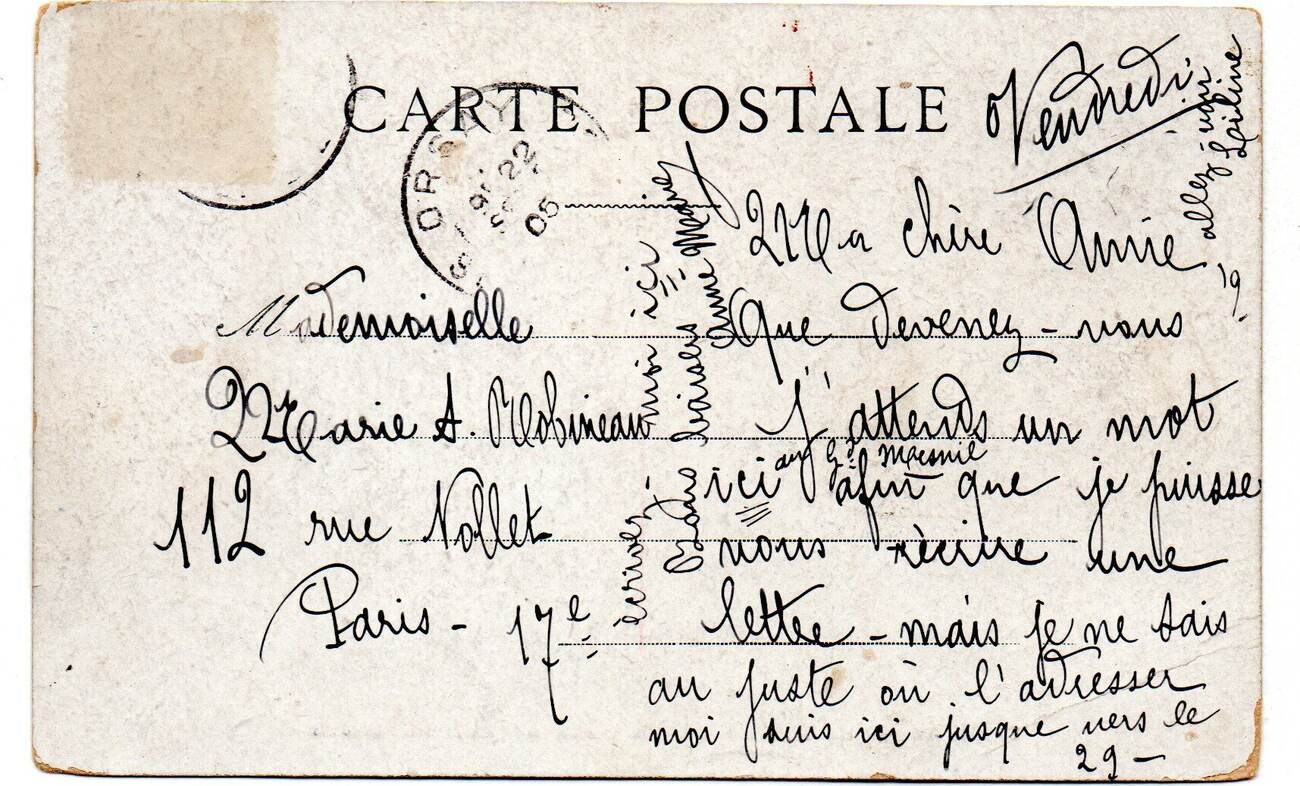 CARTE POSTALE
ORSAY
22
05
Vendredi
Mademoiselle
Marie A. Robineau
112 rue Nollet
Paris - 17e
Ma chère Amie
Que devenez-vous
J'attends un mot
ici au Gd Mesnil afin que je puisse
vous réécrire une
lettre - mais je ne sais
au juste où l'adresser
moi suis ici jusque vers le
29 -
écrivez-moi ici
Bons baisers Anne Marie
allez